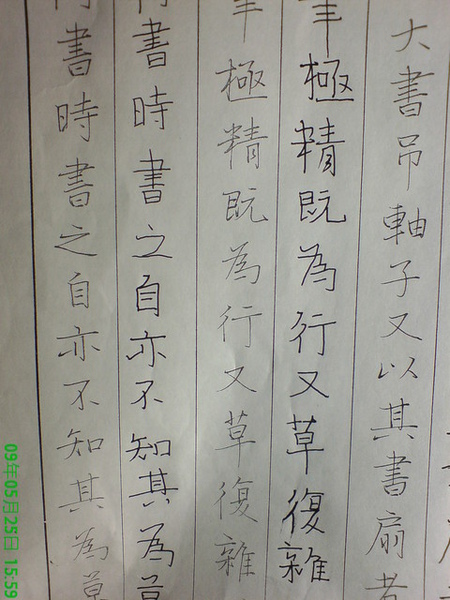 大書吊軸子又以其書扇者
年極精既為行又草復雜
年極精既為行又草復雜
書時書之自亦不知其為草
書時書之自亦不知其為草
09年05月25日 15:59